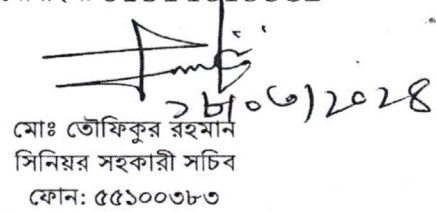 ২৮/০৩/২০২৪
মোঃ তৌফিকুর রহমান
সিনিয়র সহকারী সচিব
ফোন: ৫৫১০০৩৮৩